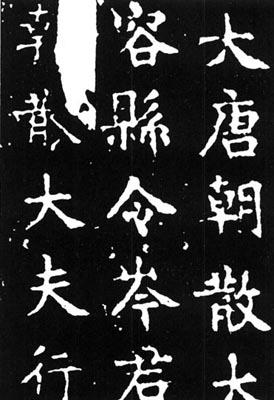 大唐朝散大
容縣令岑君
大夫行